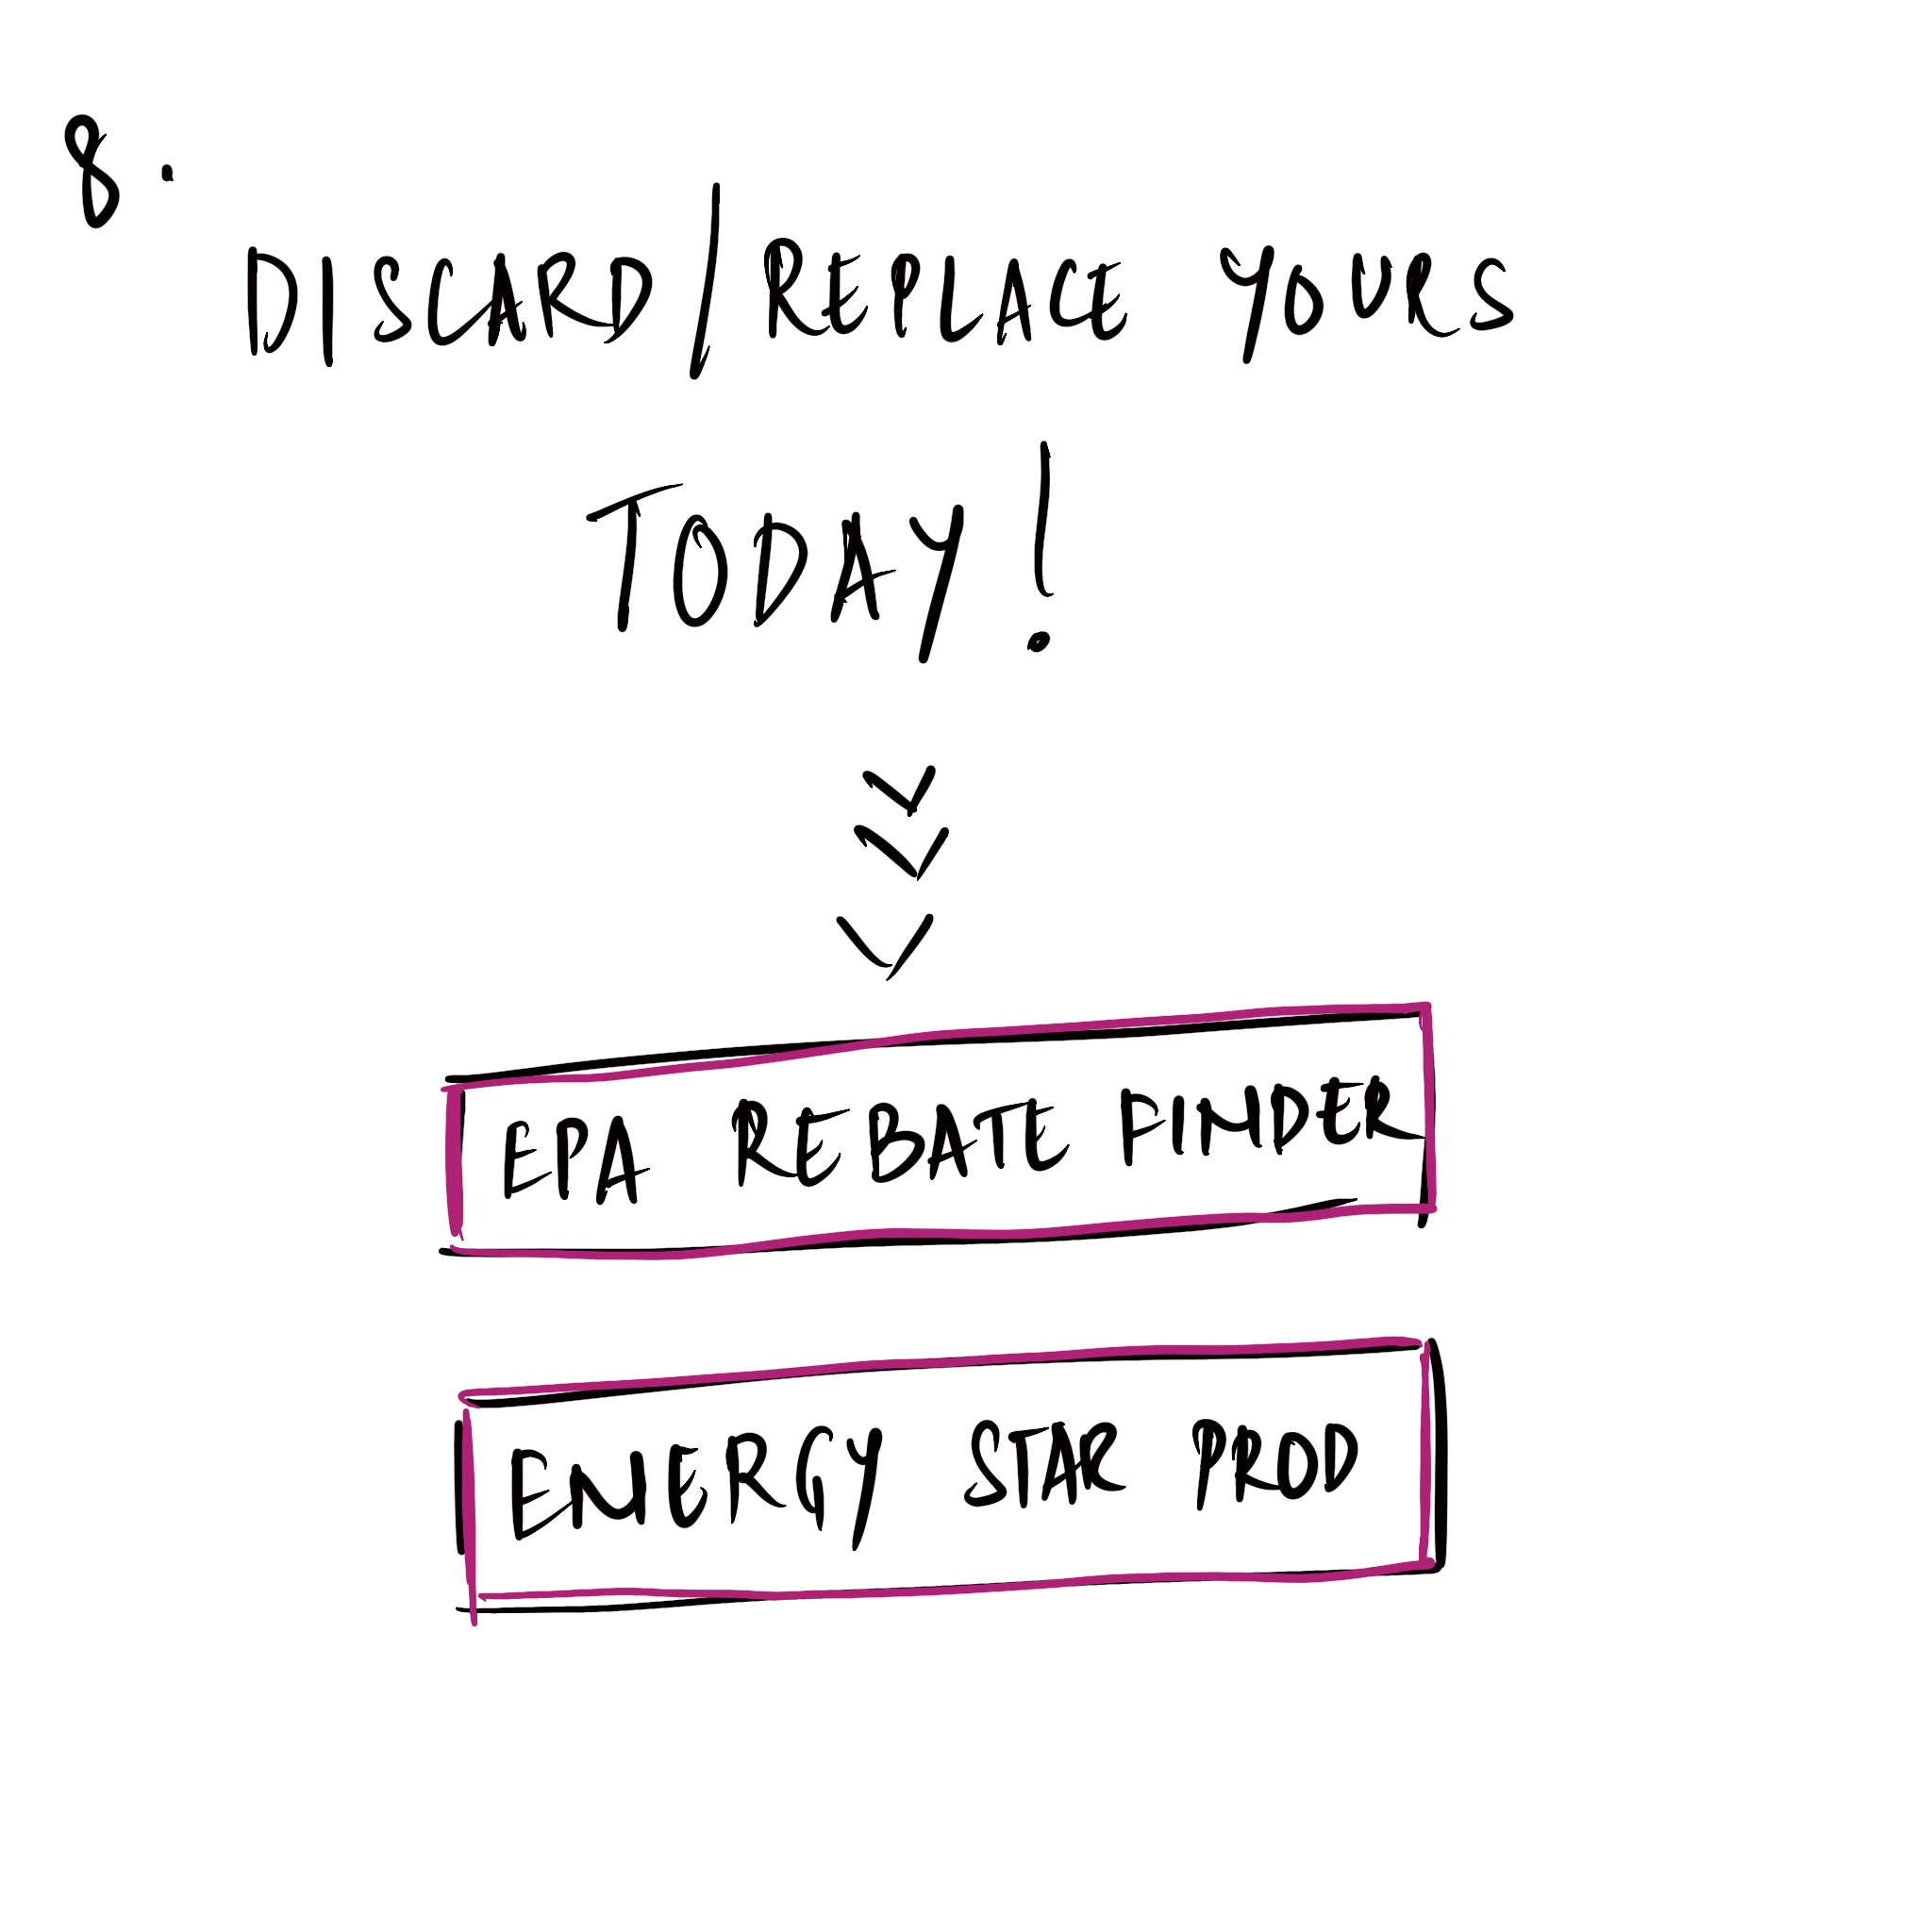 8.
DISCARD/REPLACE YOURS
TODAY!
EPA REBATE FINDER
ENERGY STAR PROD